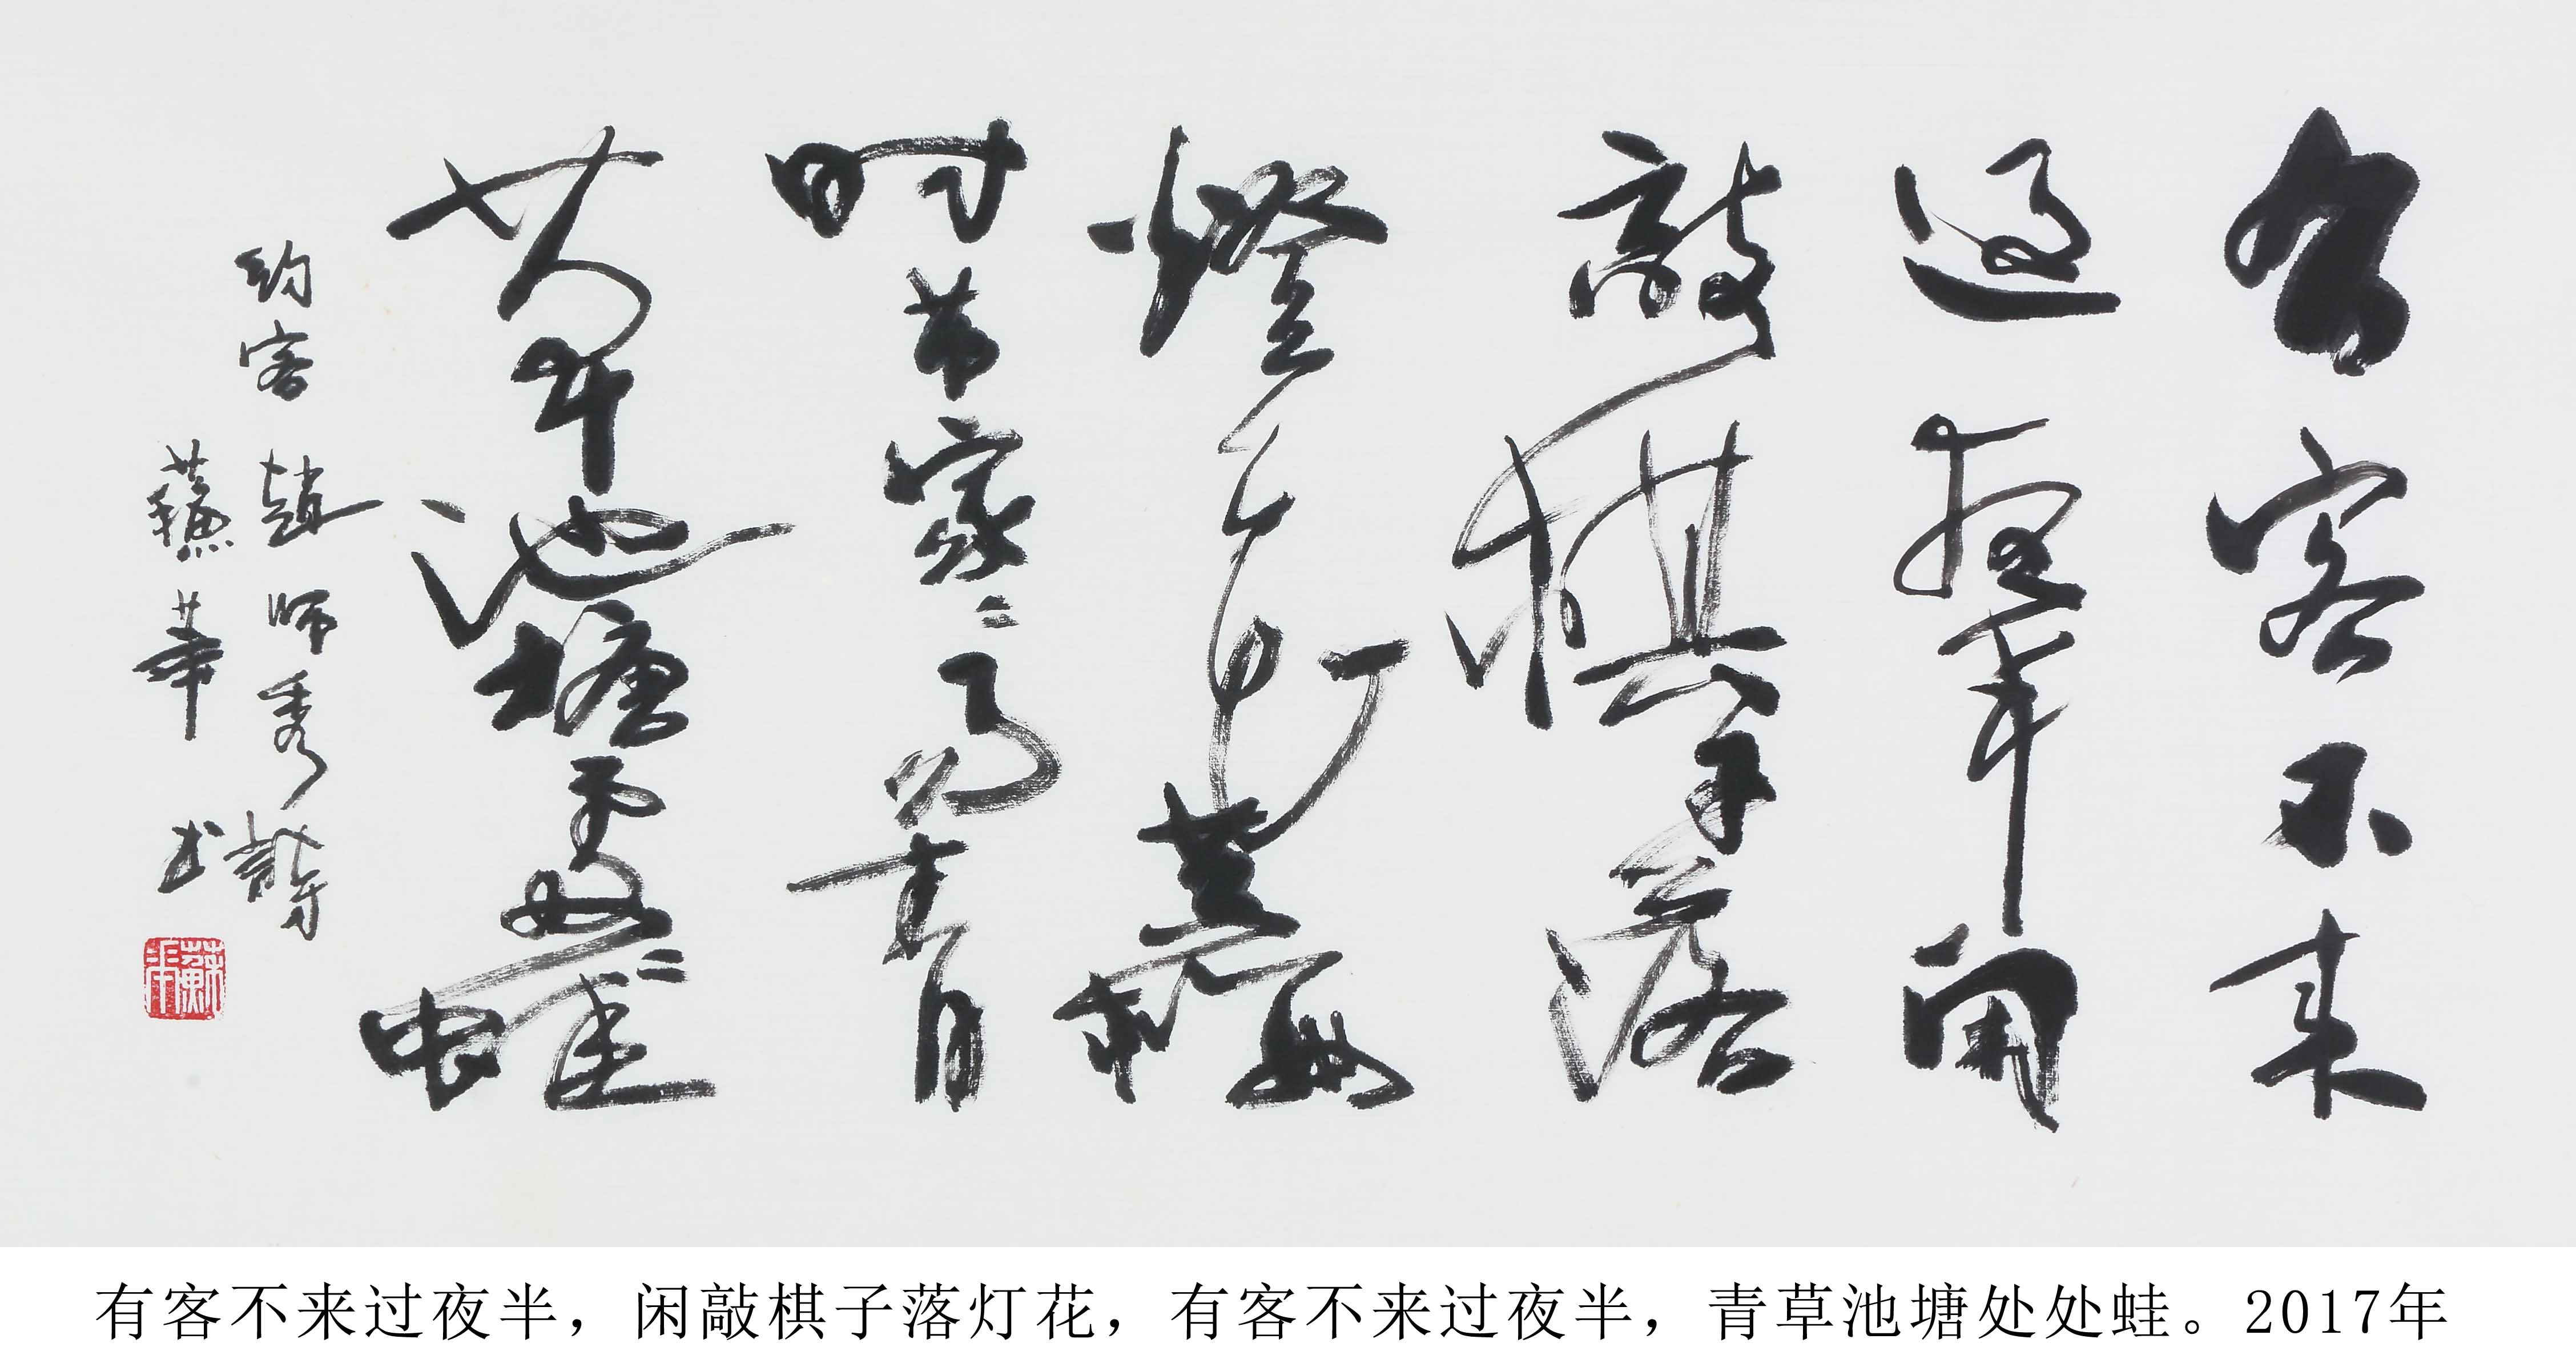 有客不来
過夜半閑
敲棋子落
燈花黄梅
时节家々雨青
草池塘處々蛙
約客 趙师秀詩
蘇華书
有客不来过夜半，闲敲棋子落灯花，有客不来过夜半，青草池塘处处蛙。2017年